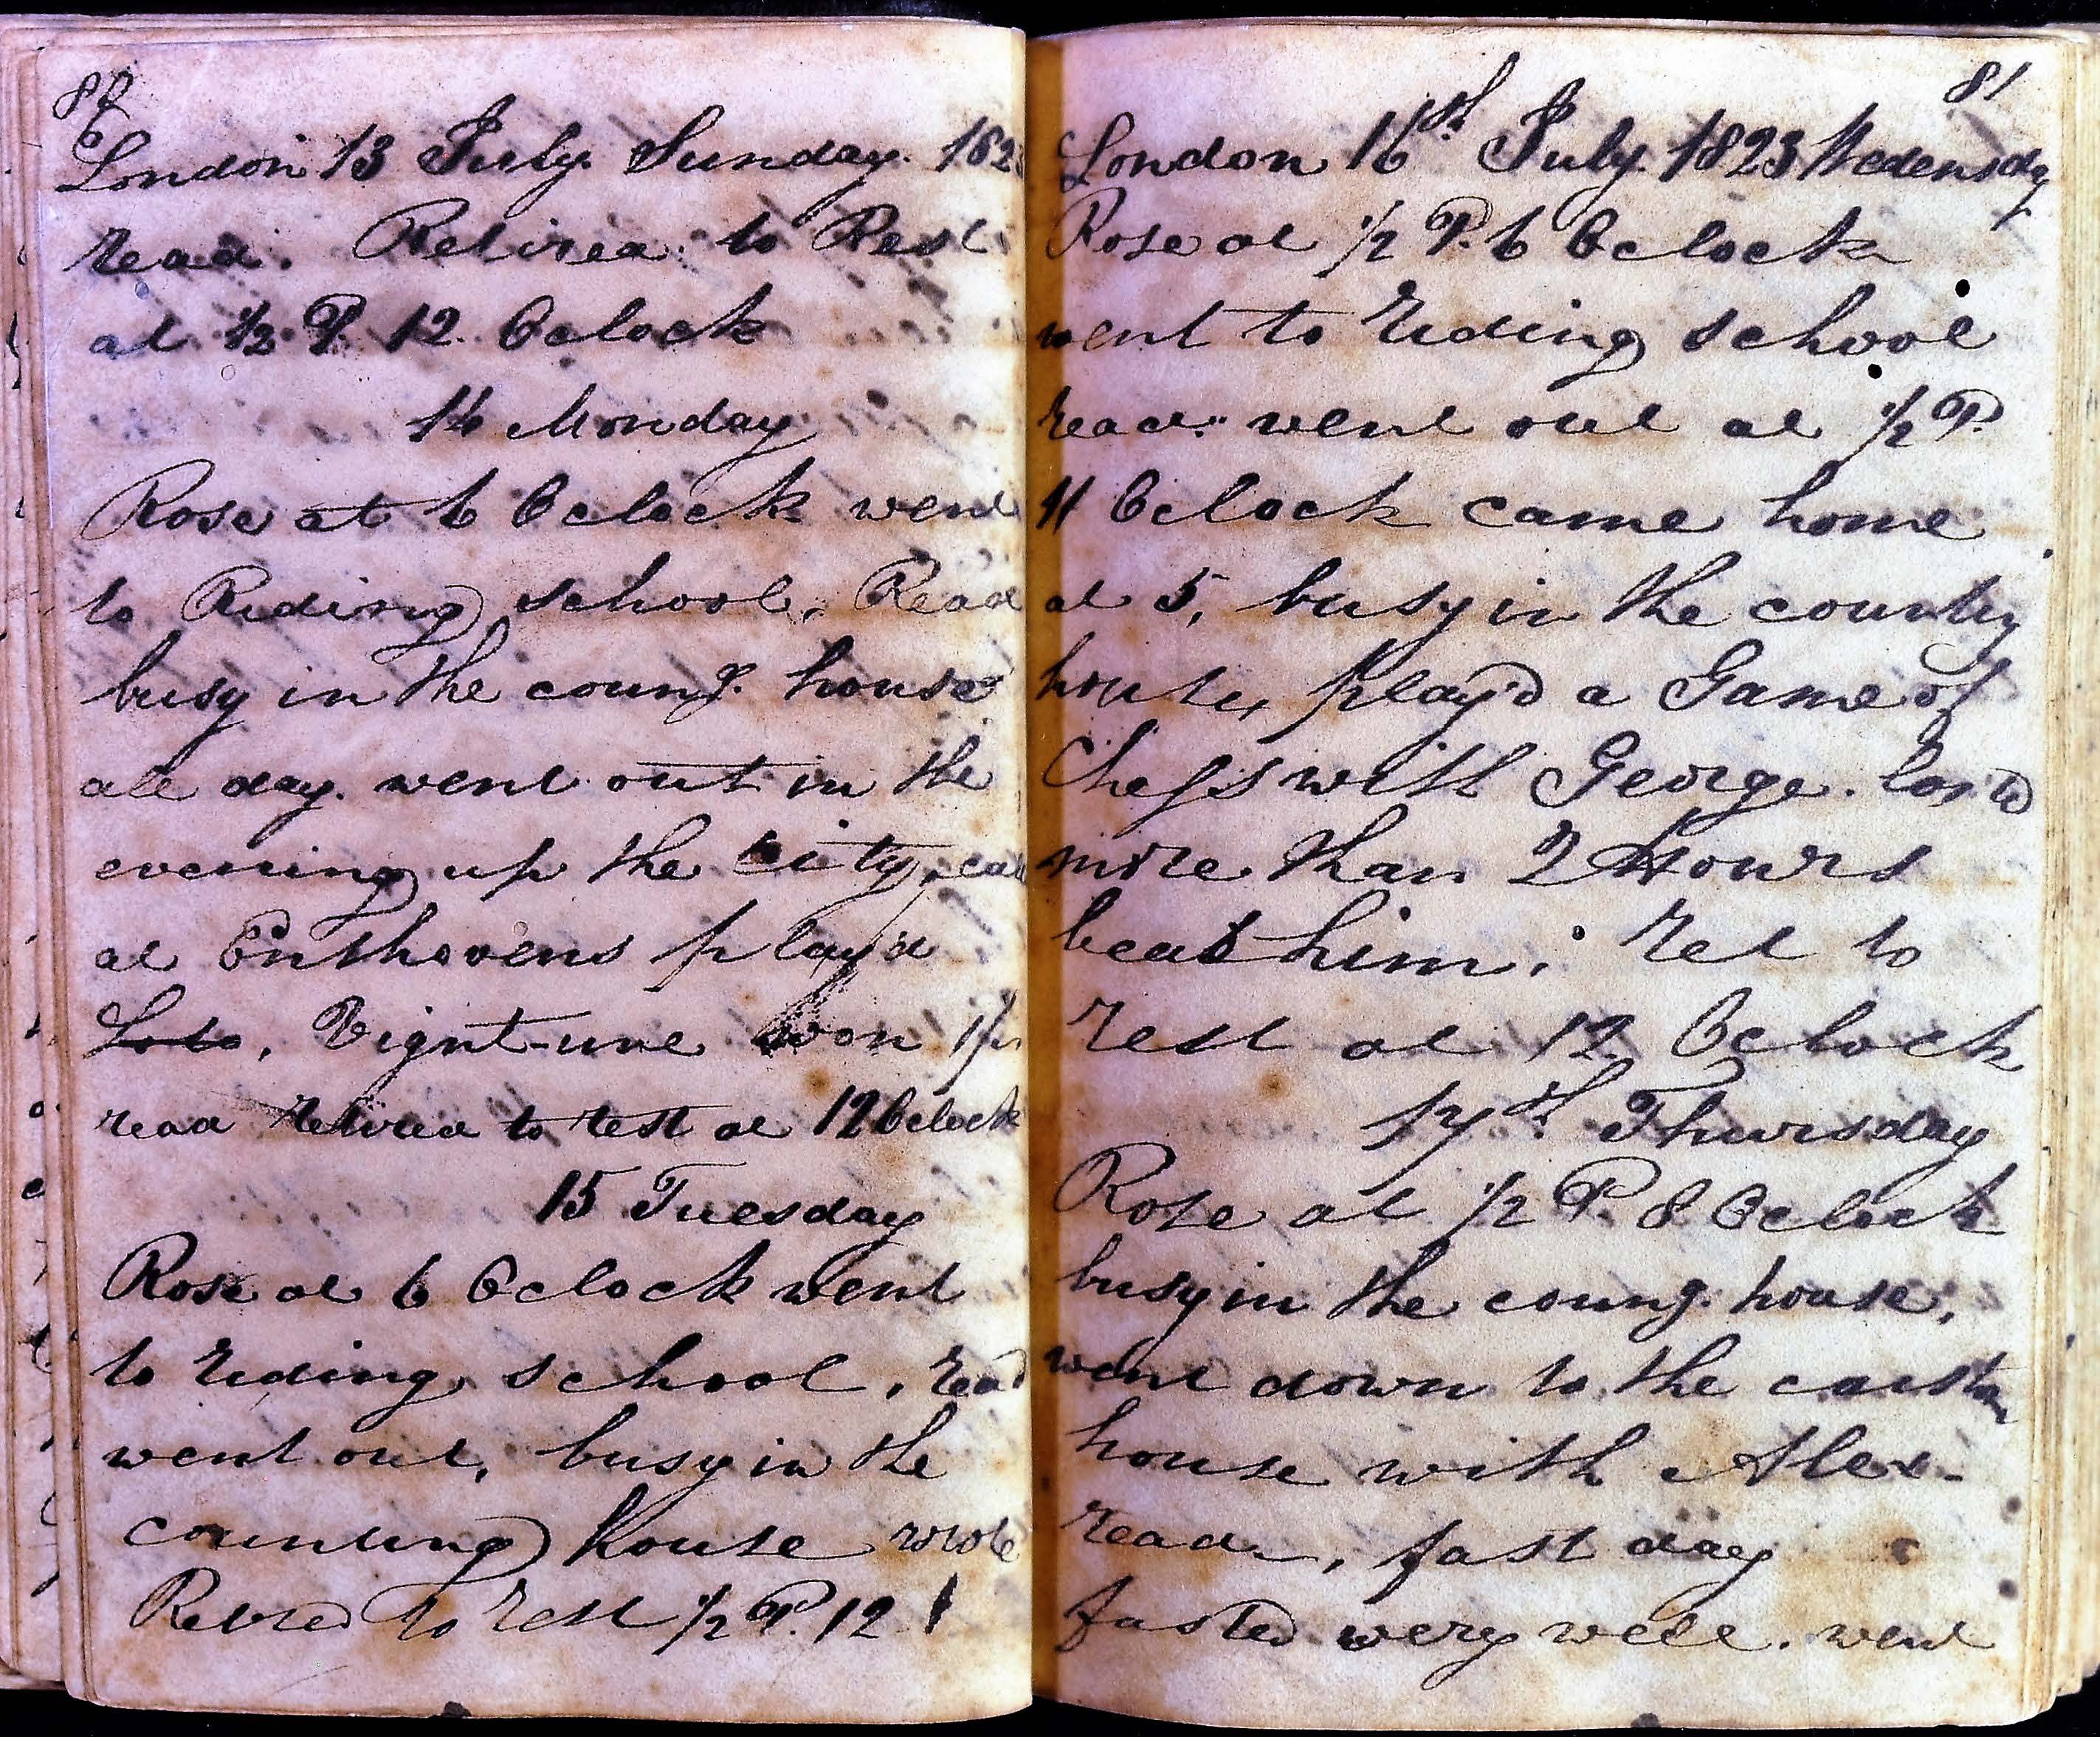 80
London 13 July. Sunday. 182
read. Retired to Rest
at 1/2 P. 12. Oclock
14 Monday
Rose at 6 Oclock went
to Riding school, Read
busy in the coung. house
all day. went out in the
evening up the City, call
at Enthovens play'd
Loto, Vignt-une won 1/
read Retired to rest at 12 Oclock
15 Tuesday
Rose at 6 Oclock went
to riding school, read
went out, busy in the
counting house wrote
Retired to rest 1/2 P. 12
81
London 16th July. 1823 Wedensday
Rose at 1/2 P. 6 Oclock
went to riding school
read. went out at 1/2 P.
11 Oclock came home
at 5, busy in the countg
house, play'd a Game of
Chess with George. last'd
more than 2 Hours
beat him. ret to
rest at 12 Oclock
17th Thursday
Rose at 1/2 P. 8 Oclock
busy in the coung. house,
went down to the custom
house with Alex.
read, fast day
fasted wery well. went